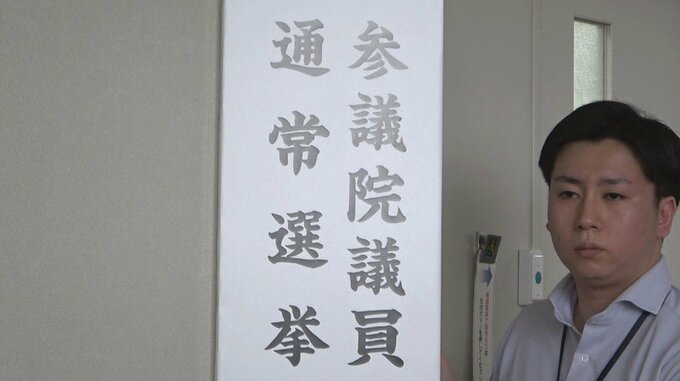 参議院議員
通常選挙